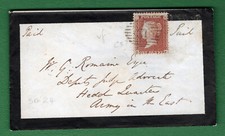 Paid Paid
W. G. Romaine Esqre
Deputy Judge Advocate
Head Quarters
Army in the East